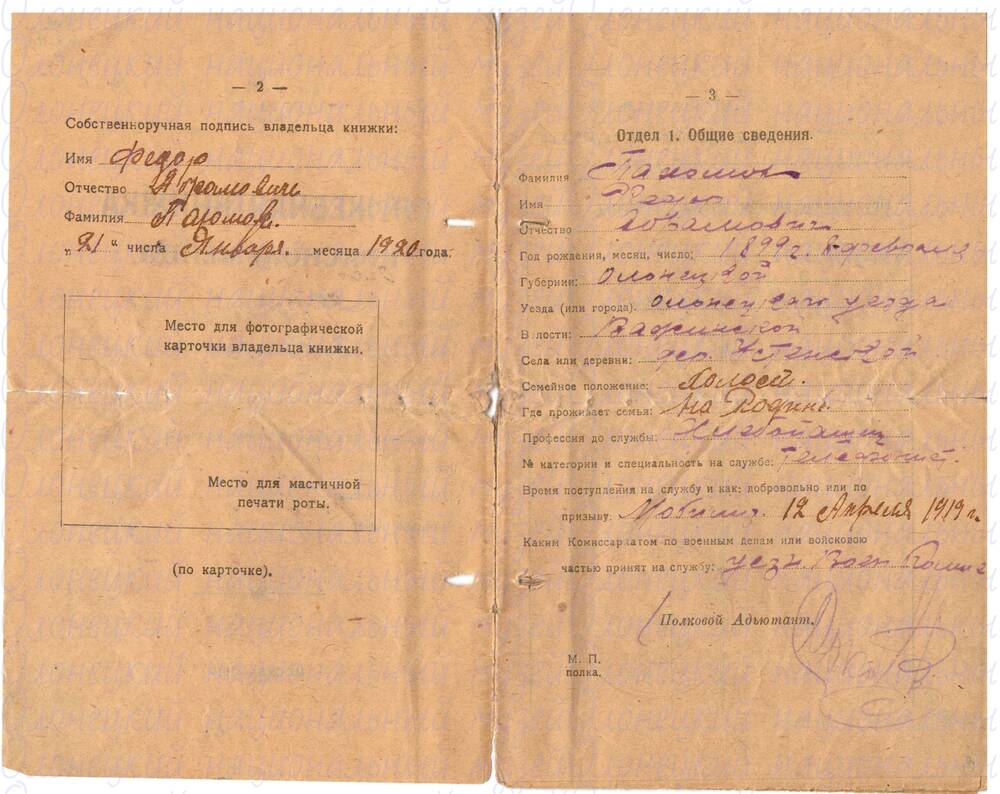 — 2 —
Собственноручная подпись владельца книжки:
Имя Федор
Отчество Абрамович
Фамилия Пахомов.
„21“ числа Января. месяца 1920 года.
Место для фотографической
карточки владельца книжки.
Место для мастичной
печати роты.
(по карточке).
— 3 —
Отдел 1. Общие сведения.
Фамилия Пахомов
Имя Федор
Отчество Абрамович
Год рождения, месяц, число: 1899 г. 8 февраля
Губернии: Олонецкой
Уезда (или города). Олонецкаго уезда
В лости:
Села или деревни: дер.
Семейное положение: Холост.
Где проживает семья: На Родине
Профессия до службы: Хлебопашец
№ категории и специальность на службе: Телефонист.
Время поступления на службу и как: добровольно или по
призыву: Мобилиз. 12 Апреля 1919 г.
Каким Комиссариатом по военным делам или войсковою
частью принят на службу: уезд. Воен
Полковой Адъютант.
М. П.
полка.